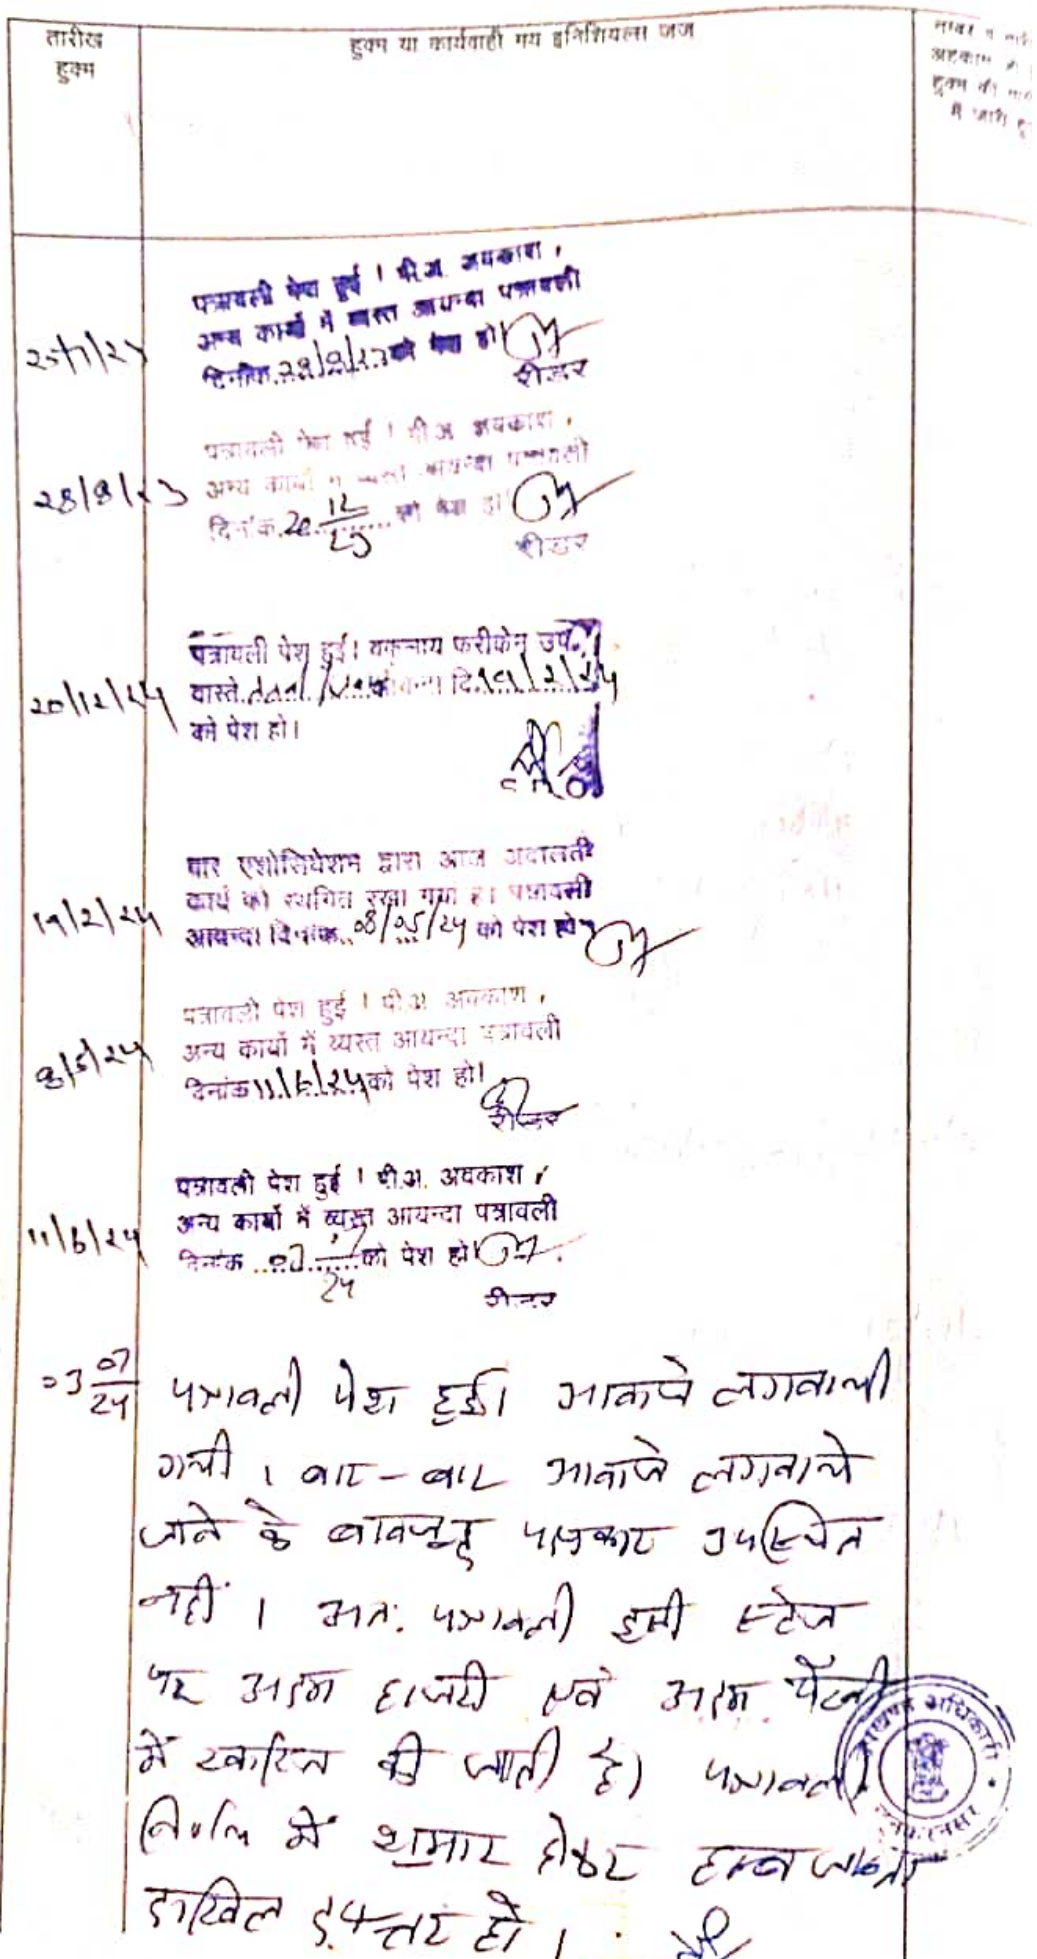 तारीख
हुक्म
हुक्म या कार्यवाही मय इनिशियल्स जज
नम्बर व
अहकाम
हुक्म की
में जारी
पत्रावली पेश हुई । पी.अ. अवकाश,
अन्य कार्यो में व्यस्त आयन्दा पत्रावली
दिनांक 28/8/23 को पेश हो।
रीडर
28/8/23
पत्रावली पेश हुई । पी.अ. अवकाश,
अन्य कार्यो में व्यस्त आयन्दा पत्रावली
दिनांक 20 12/23 को पेश हो
रीडर
20/12/24
पत्रावली पेश हुई। वकलाय फरीकेन उप.
वास्ते दि. 19/2/24
को पेश हो।
19/2/24
बार एशोसियेशन द्वारा आज अदालती
कार्य को स्थगित रखा गया है। पत्रावली
आयन्दा दिनांक 08/05/24 को पेश हो
8/5/24
पत्रावली पेश हुई । पी.अ. अवकाश,
अन्य कार्यो में व्यस्त आयन्दा पत्रावली
दिनांक 11/6/24 को पेश हो।
रीडर
11/6/24
पत्रावली पेश हुई । पी.अ. अवकाश,
अन्य कार्यो में व्यस्त आयन्दा पत्रावली
दिनांक 03 7/24 को पेश हो
रीडर
03 07/24
पत्रावली पेश हुई। आवाजे लगवायी
गयी । बार-बार आवाजे लगवाये
जाने के बावजूद पक्षकार उपस्थित
नहीं । अतः पत्रावली इसी स्टेज
पर अदम हाजरी एवं अदम पैरवी
में खारिज की जाती है। पत्रावली
निर्णित में शुमार होकर
दाखिल दफ्तर हो ।
अधिकारी